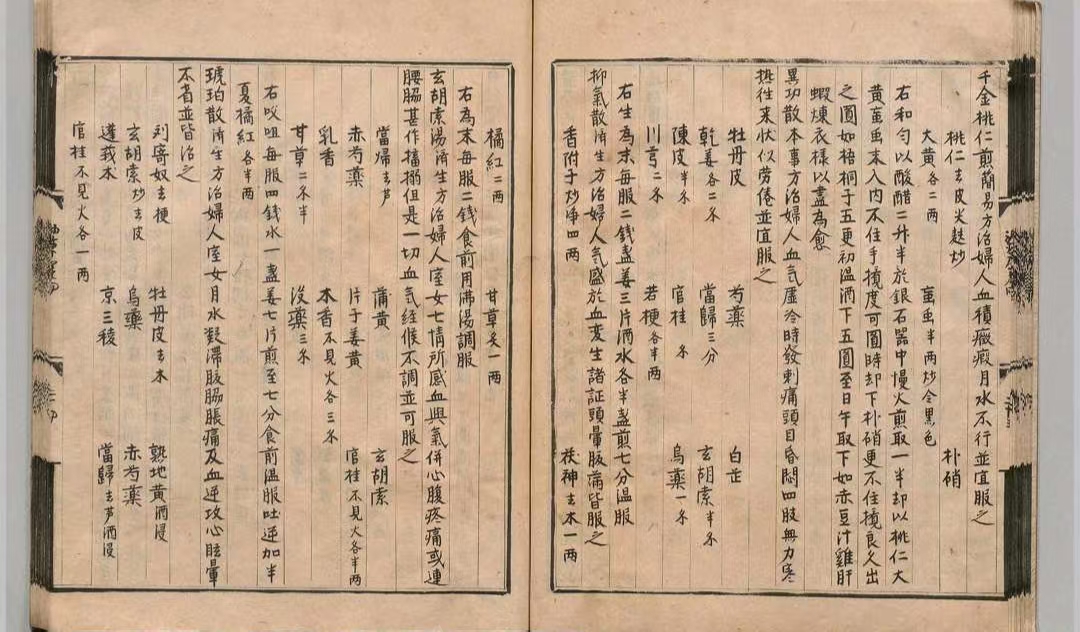 千金桃仁煎簡易方治婦人血積癥瘕月水不行並宜服之
桃仁去皮尖麩炒 朴硝
大黃各二兩 䖟虫半两炒令黑色
右和勻以酸醋二升半於銀石器中慢火煎取一半却以桃仁大
黃䖟虫末入內不住手攪度可圓時却下朴硝更不住攪良久出
之圓如梧桐子五更初温酒下五圓至日午取下如赤豆汁雞肝
蝦煉衣樣以盡為愈
異功散本事方治婦人血气虛冷時發刺痛頭目昏悶四肢無力寒
熱徃来状似劳倦並宜服之
牡丹皮 芍藥 白芷
乾姜各二分 當歸三分 玄胡索半分
陳皮半分 官桂 分 烏藥一分
川芎二分 苦梗各半两
右生為末每服二錢盞姜三片酒水各半盞煎七分温服
抑氣散濟生方治婦人気盛於血変生諸証頭暈腹痛皆服之
香附子炒爭四两 茯神去木一两
橘紅二两 甘草炙一两
右為末每服二錢食前用沸湯調服
玄胡索湯濟生方治婦人室女七情所感血與氣併心腹疼痛或連
腰脇甚作搐搦但是一切血気経候不調並可服之
當帰去芦 蒲黃 玄胡索
赤芍藥 片子姜黃 官桂不見火各半两
乳香 木香不見火各三分
甘草二分半 没藥三分
右㕮咀每服四錢水一盞姜七片煎至七分食前温服吐逆加半
夏橘紅各半两
琥珀散濟生方治婦人室女月水凝滞腹脇脹痛及血逆攻心眩暈
不省並皆治之
刘寄奴去梗 牡丹皮去木 熟地黃酒浸
玄胡索炒去皮 烏藥 赤芍藥
蓬莪术 京三稜 當歸去芦酒浸
官桂不見火各一两